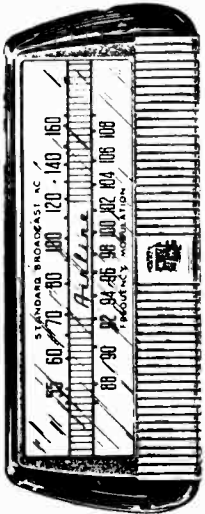 STANDARD BROADCAST KC
55 60 70 80 100 120 140 160
Airline
88 90 92 94 96 98 100 102 104 106 108
FREQUENCY MODULATION